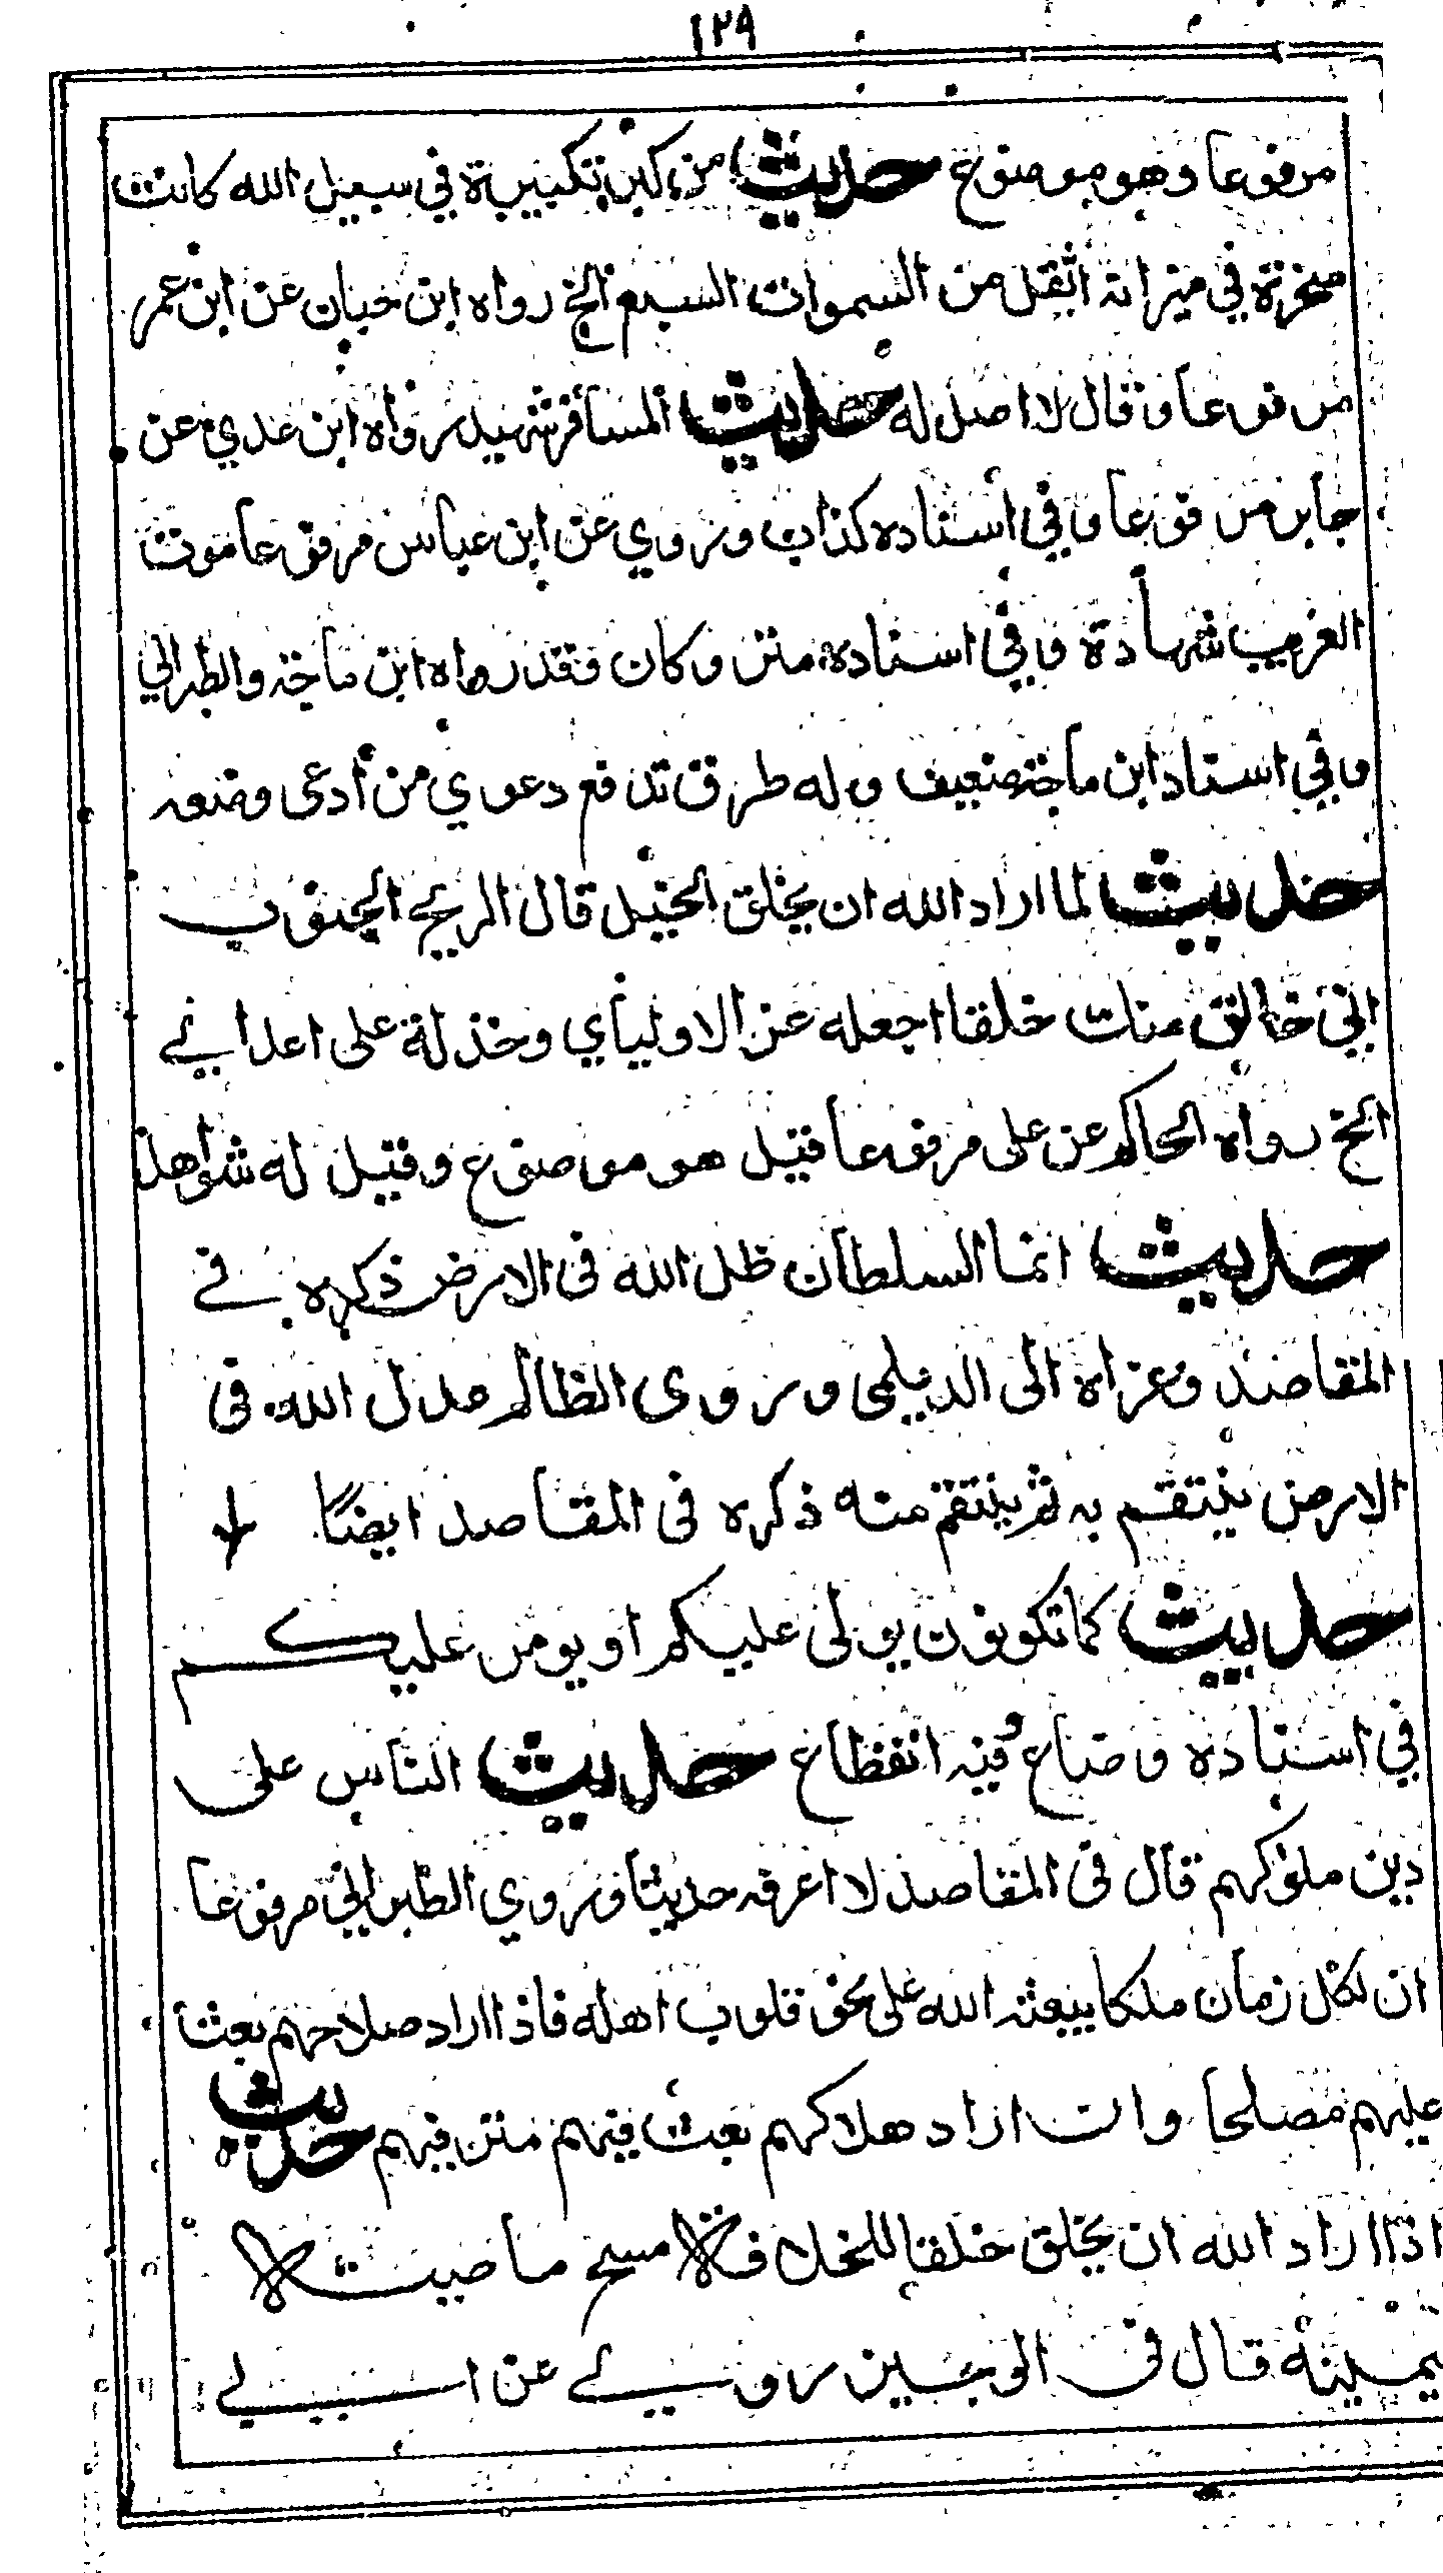 ١٢٩
مرفوعا وهو موضوع حديث من كبر تكبيرة في سبيل الله كانت
صخرة في ميزانه اثقل من السموات السبع الخ رواه ابن حبان عن ابن عمر
مرفوعا وقال لا اصل له حديث المسافر شهيد رواه ابن عدي عن
جابر مرفوعا وفي اسناده كذاب وروي عن ابن عباس مرفوعا موت
الغريب شهادة وفي اسناده متروكان فقد رواه ابن ماجه والطبراني
وفي اسناد ابن ماجه ضعيف وله طرق تدفع دعوي من أدعى وضعه
حديث لما اراد الله ان يخلق الخيل قال الريح الجنوب
اني خالق منك خلقا اجعله عز الاوليأي وخذلة على اعدايے
الخ رواه الحاكم عن على مرفوعا قيل هو موضوع وقيل له شواهد
حديث انما السلطان ظل الله فى الارض ذكره فے
المقاصد وعزاه الى الديلمى وروى الظالم عدل الله فى
الارض ينتقم به ثم ينتقم منه ذكره فى المقاصد ايضًا
حديث كما تكونون يولى عليكم او يومر عليكم
في اسناده وضاع وفيه انقطاع حديث الناس على
دين ملوكهم قال فى المقاصد لا اعرفه حديثا وروي الطبراني مرفوعا
ان لكل زمان ملكا يبعثه الله على نحو قلوب اهله فاذا اراد صلاحهم بعث
عليهم مصلحا وان اراد هلاكهم بعث فيهم مترفيهم حديث
اذا اراد الله ان يخلق خلقا للخلافة مسح ناصيته
بيمينه قال فى الوجيز روى عن